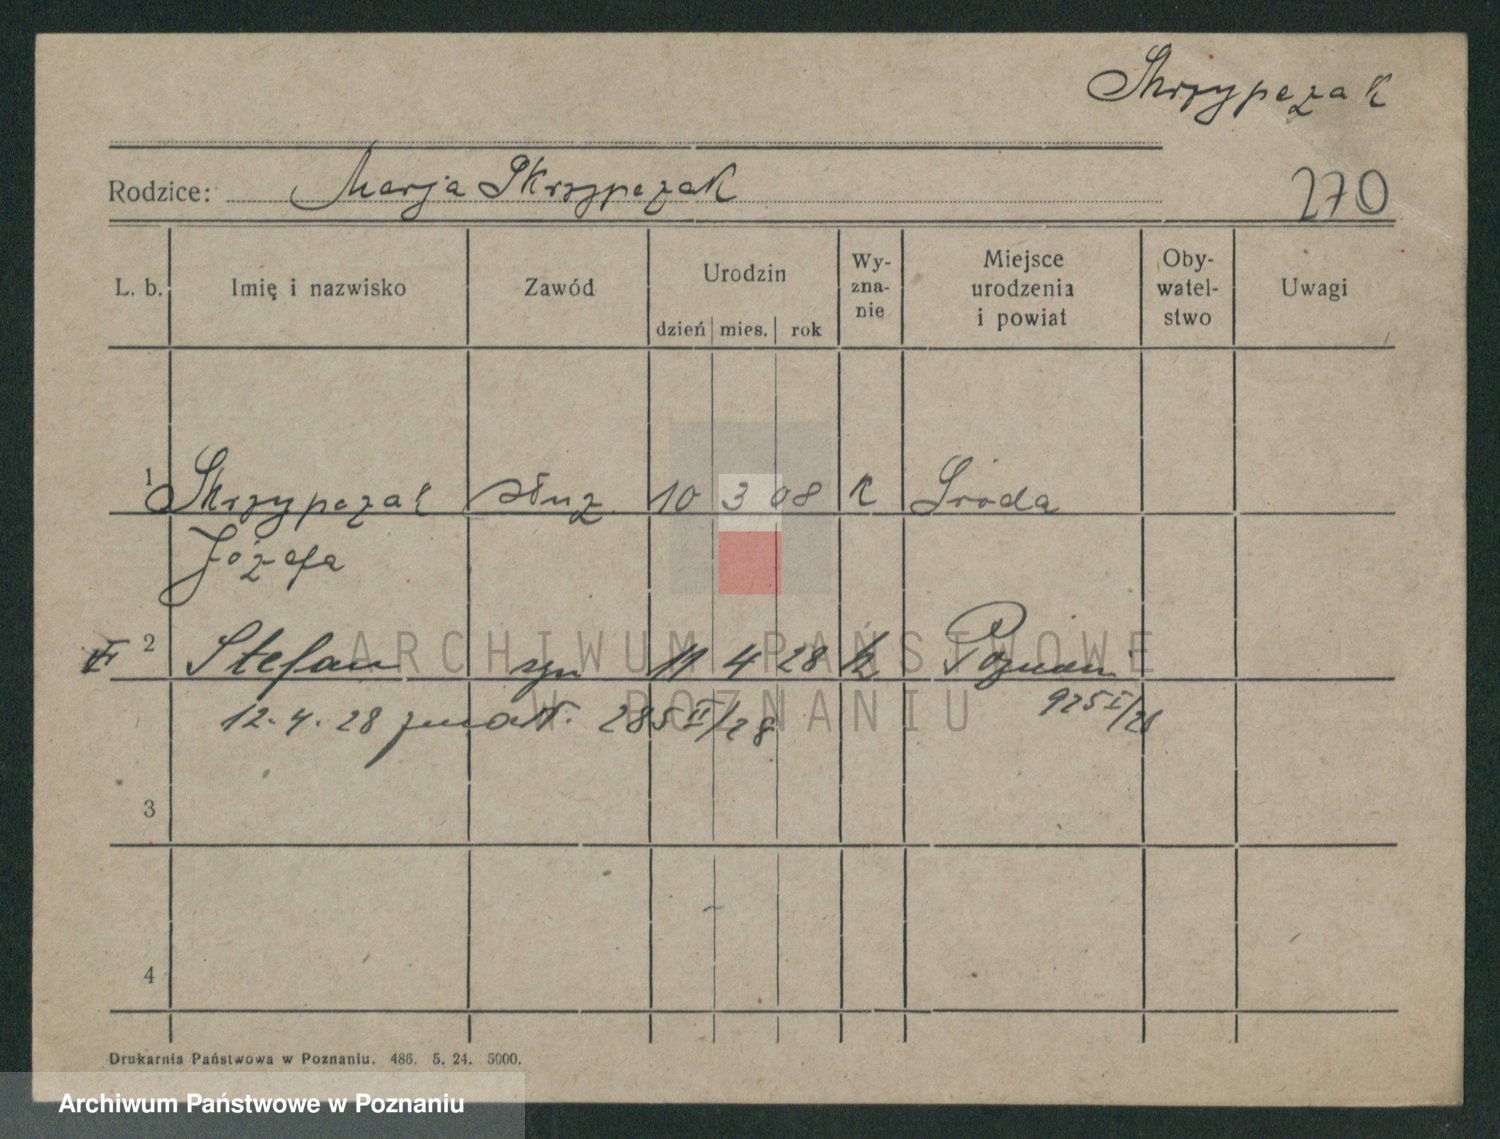 Skrzypczak
Rodzice: Marja Skrzypczak
270
L. b. Imię i nazwisko Zawód Urodzin Wy-zna-nie Miejsce urodzenia i powiat Oby-watel-stwo Uwagi
dzień mies. rok
1 Skrzypczak służ. 10 3 08 k Środa
Józefa
2 Stefan syn 11 4 28 k Poznań
12.4.28 zmarł. 285 II/28 925 I/28
3
4
Drukarnia Państwowa w Poznaniu. 486. 5. 24. 5000.
ARCHIWUM PAŃSTWOWE
W POZNANIU
Archiwum Państwowe w Poznaniu